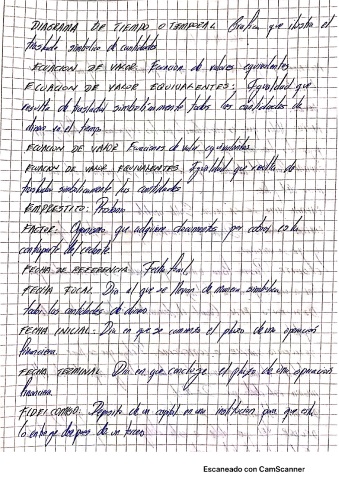 DIAGRAMA DE TIEMPO O TEMPORAL Grafica que ilustra el
traslado simbolico de cantidades
ECUACION DE VALOR Ecuacion de valores equivalentes
ECUACION DE VALOR EQUIVALENTES: Igualdad que
resulta de trasladar simbolicamente todas las cantidades de
dinero en el tiempo
ECUACION DE VALOR Ecuaciones de valor equivalentes
ECUACION DE VALOR EQUIVALENTES Igualdad que resulta de
trasladar simbolicamente las cantidades
EMPRESTITO: Prestamo
FACTOR: Organismo que adquiere documentos por cobrar es la
contraparte del cedente
FECHA DE REFERENCIA Fecha focal
FECHA FOCAL Dia al que se llevan de manera simbolica
todas las cantidades de dinero
FECHA INICIAL: Dia en que se comienza el plazo de una operacion
financiera
FECHA TERMINAL: Dia en que concluye el plazo de una operacion
financiera
FIDEICOMISO: Deposito de un capital en una institucion para que esta
lo entregue despues de un tercero
Escaneado con CamScanner